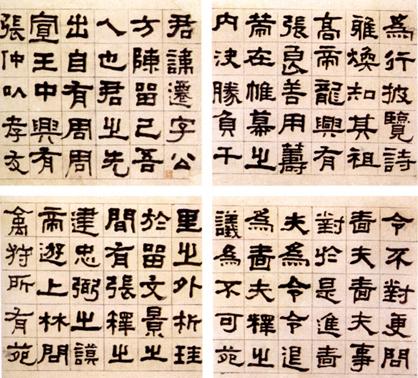 君諱遷字公
方陳留己吾
人也君之先
出自有周周
宣王中興有
張仲以孝友
為行披覽詩
雅煥知其祖
高帝龍興有
張良善用籌
策在帷幕之
內決勝負千
里之外析珪
於留文景之
間有張釋之
建忠弼之謨
帝遊上林問
禽狩所有苑
令不對更問
嗇夫嗇夫事
對於是進嗇
夫為令令退
為嗇夫釋之
議為不可苑